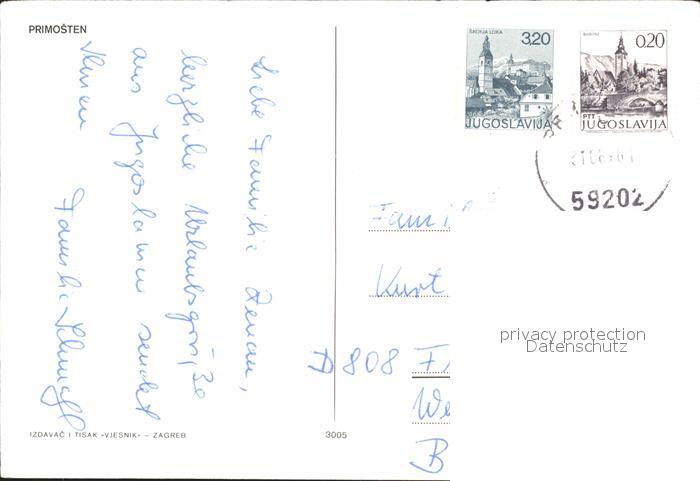 PRIMOŠTEN
Liebe Familie
herzliche Urlaubsgrüße
aus Jugoslawien sendet
Ihnen Familie
ŠKOFJA LOKA
3,20
JUGOSLAVIJA
0,20
PTT
JUGOSLAVIJA
59202
Fami
Kurt
D 808 F
We
B
privacy protection
Datenschutz
IZDAVAČ I TISAK «VJESNIK» – ZAGREB
3005